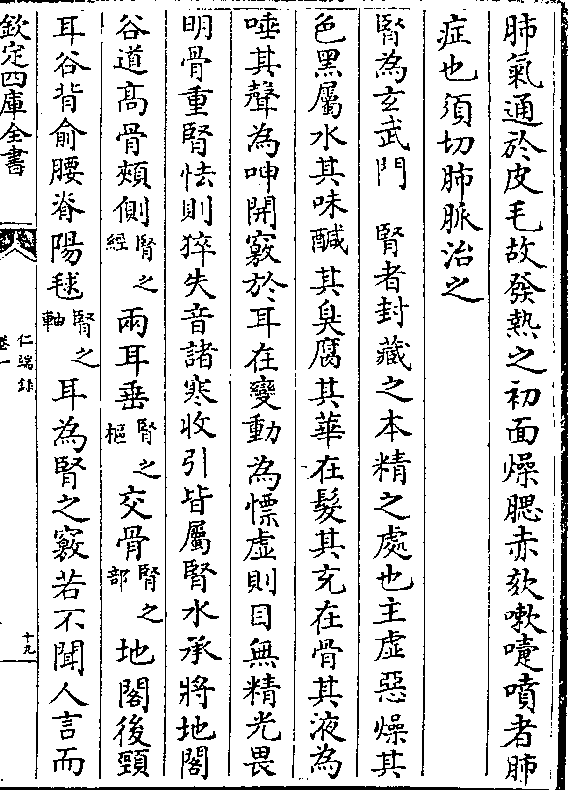 肺氣通於皮毛故發熱之初面燥腮赤欬嗽嚏噴者肺
症也須切肺脈治之
腎為玄武門　腎者封藏之本精之處也主虛惡燥其
色黑屬水其味醎其臭腐其華在髮其充在骨其液為
唾其聲為呻開竅於耳在變動為慄虛則目無精光畏
明骨重腎怯則猝失音諸寒收引皆屬腎水承將地閣
谷道髙骨頰側腎之經兩耳垂腎之樞交骨腎之部地閣後頸
耳谷背俞腰脊陽毬腎之軸耳為腎之竅若不聞人言而
欽定四庫全書
仁端錄
卷一
十九